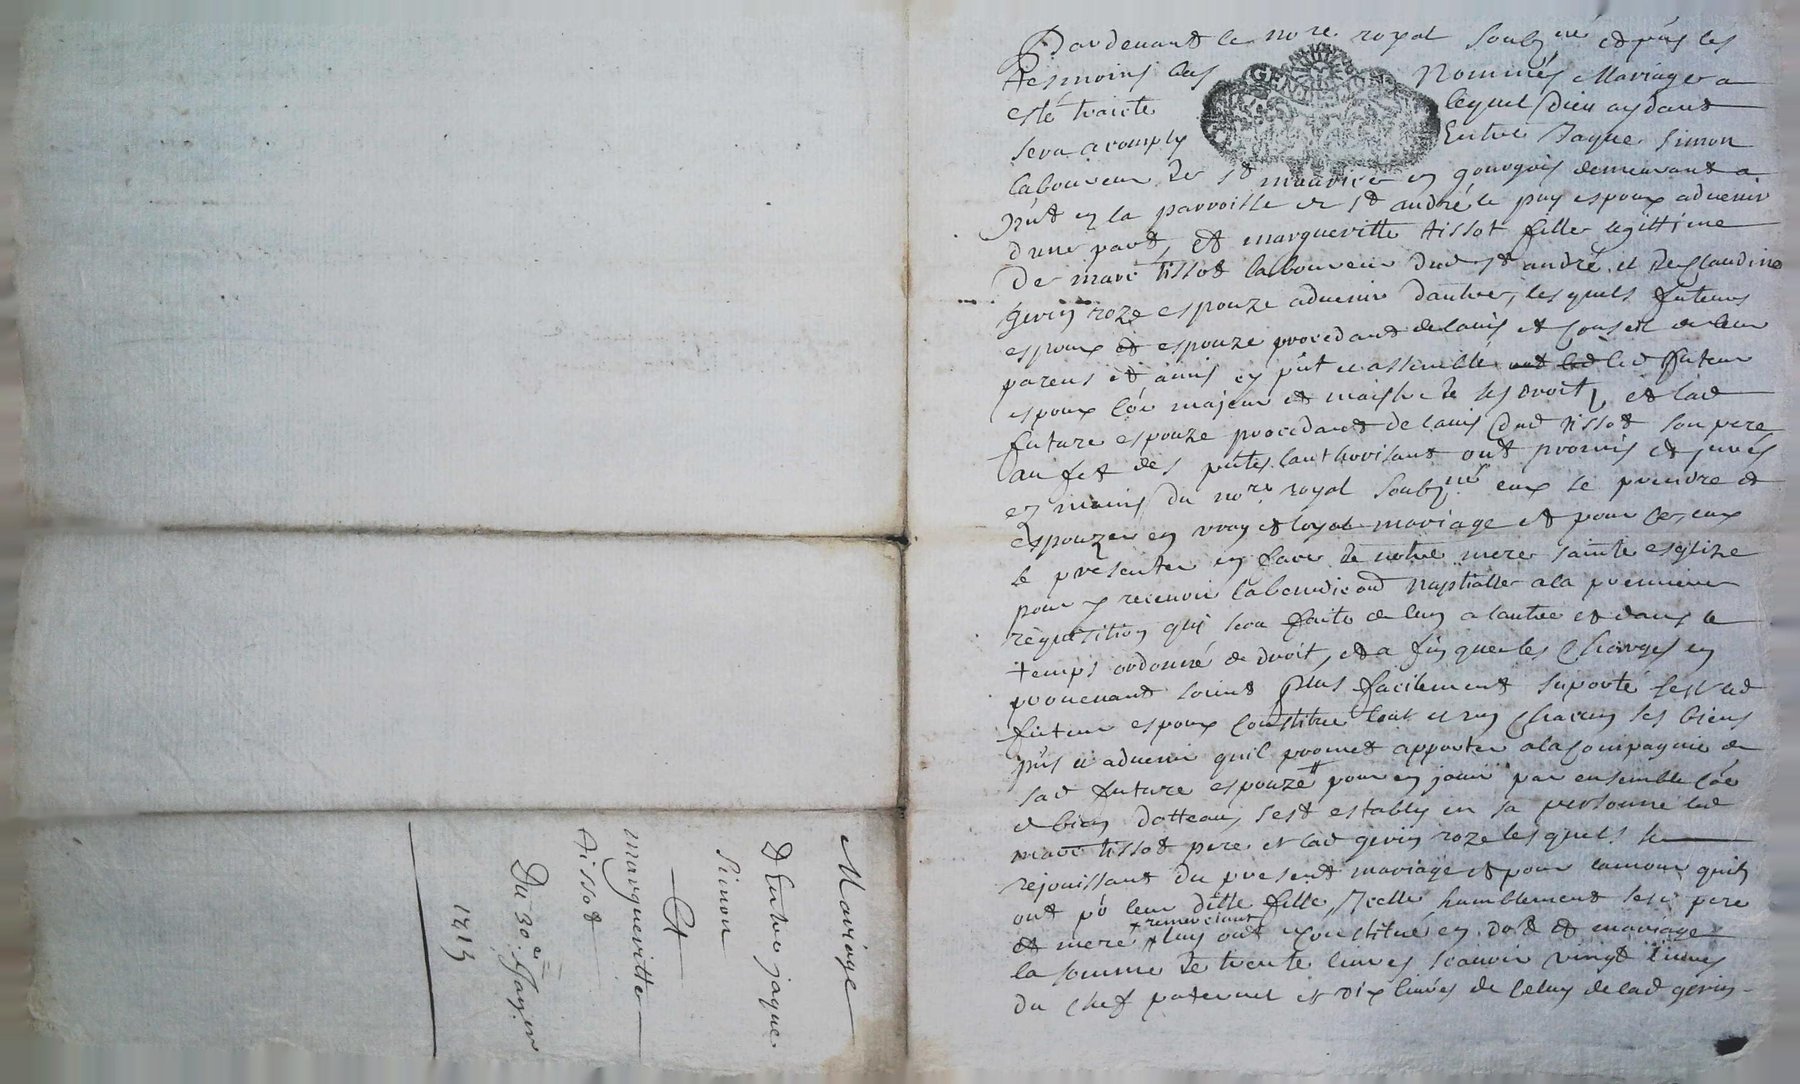 Pardevant le no.re royal soubz.né et pñs les
tesmoins bas nommés Mariage a
esté traicté lequel Dieu aydant
sera acomply Entre Jaque Simon
laboureur de st maurice en gourgois demeurant a
pñt en la parroisse de st andré le puy espoux aduenir
dune part, et margueritte tissot fille legittime
De marc tissot laboureur dud st andré et de Claudine
gerin roze espouze aduenir dautre, lesquels futeurs
espoux et espouze procedant de lauis et conseil de leur
parens et amis en pñt et assemblé led futeur
espoux côe majeur et maistre de ses droits, et lad
future espouze procedant de lauis dud tissot son pere
au fet des pñtes lauthorisant ont promis et jurés
es mains du no.re royal soubz.né eux se prendre et
espouzer en vray et loyal mariage et pour ce eux
se presenter en face de notre mere sainte esglize
pour y receuoir la benediõn nuptialle a la premiere
requisition quy sera faite de luy a lautre et dans le
temps ordonné de droit, et a fin que les charges en
prouenant soient plus facilement suporté sest led
futeur espoux constitué tout et un chacun ses biens
pñs et aduenir quil promet apporter a la compagnie de
sad future espouze pour en jouir par ensemble côe
de bien dotteaux, sest estably en sa personne led
marc tissot pere et lad gerin roze lesquels se
rejouissant du present mariage et pour lamour quils
ont pô leur ditte fille, Icelle humblement sesd pere
et mere remerciant luy ont constitué en dot et mariage
la somme de trente liures scauoir vingt liures
du chef paternel et dix liures de celuy de lad gerin
Mariage
d Entre jaque
Simon
Et
margueritte
tissot
Du 30e Janvier
1713